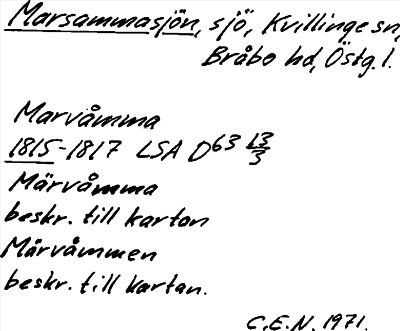 Marsammasjön, sjö, Kvillinge sn,
Bråbo hd, Östg. l.
Marvåmma
1815-1817 LSA D63 13/3
Märvåmma
beskr. till kartan
Mårvåmmen
beskr. till kartan.
C.E.N. 1971.